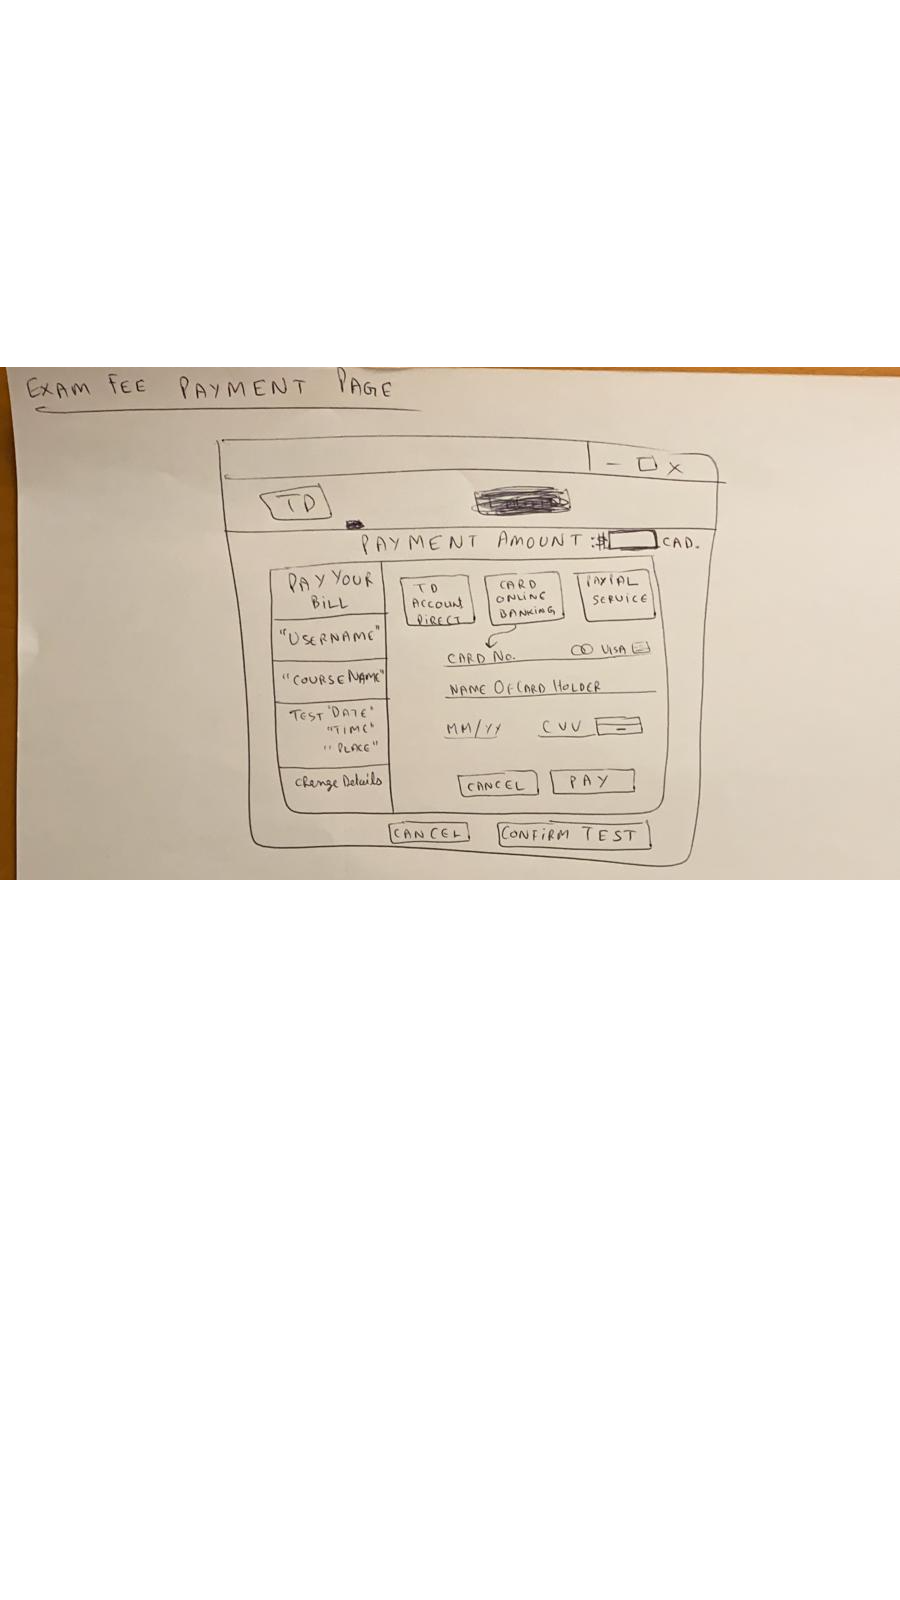 EXAM FEE PAYMENT PAGE
- □ X
TD
PAYMENT AMOUNT :$ CAD.
PAY YOUR
BILL
"USERNAME"
"COURSE NAME"
TEST "DATE"
"TIME"
"PLACE"
Change Details
TD
ACCOUNT
DIRECT
CARD
ONLINE
BANKING
PAYPAL
SERVICE
CARD No. VISA
NAME OF CARD HOLDER
MM/YY CVV
CANCEL PAY
CANCEL CONFIRM TEST